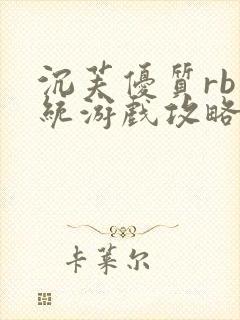 沉芙優質rb
統游戲攻略
卡萊尔